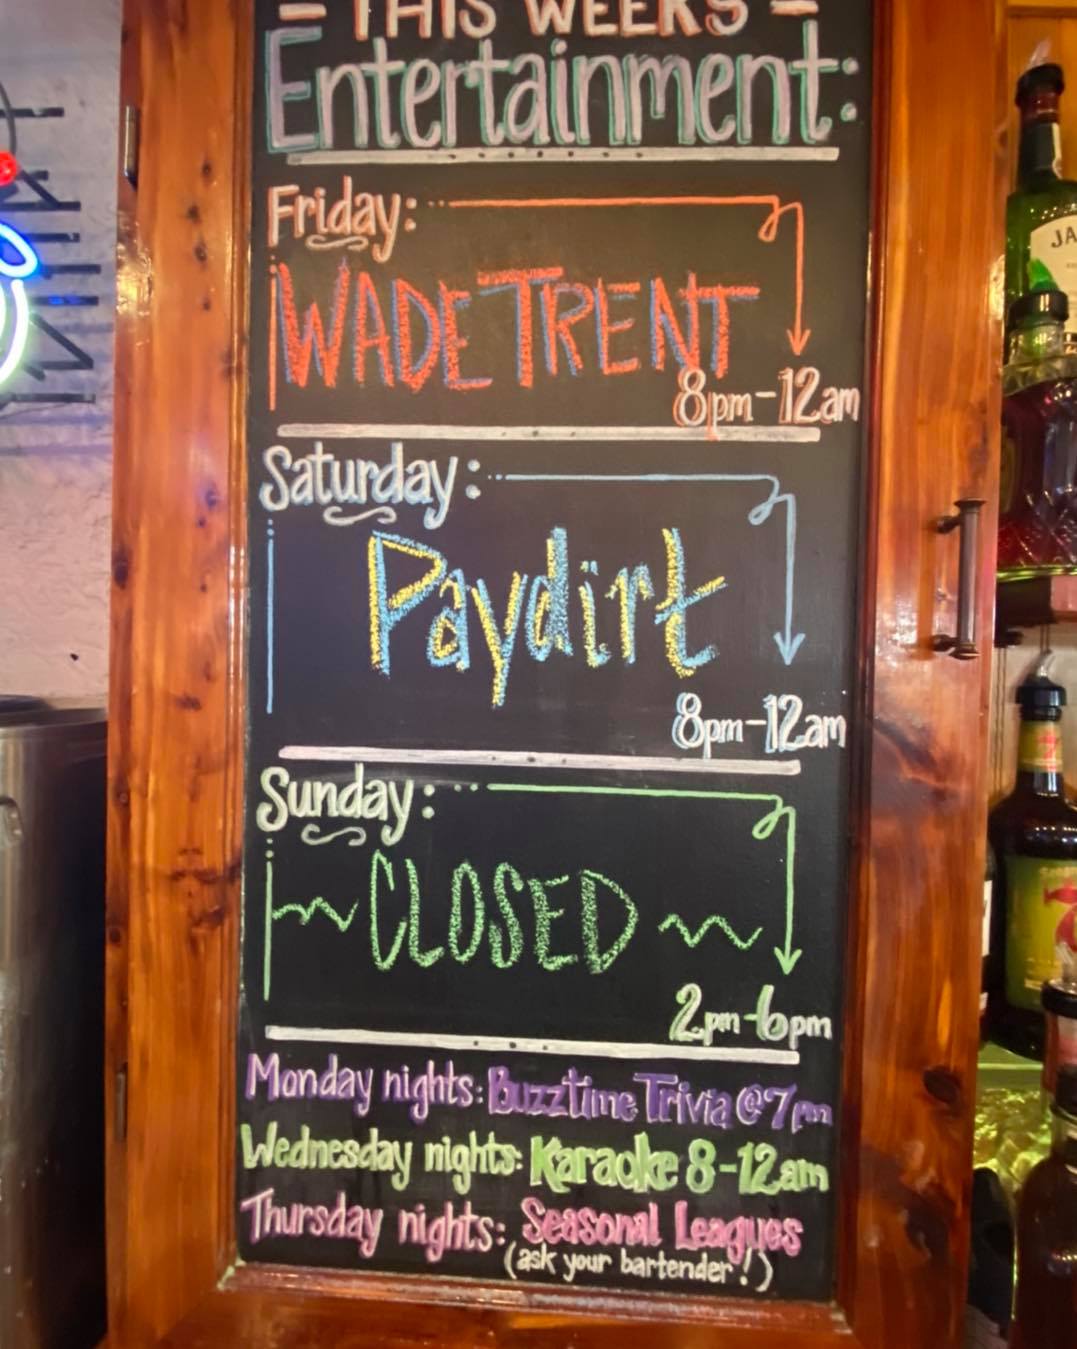 THIS WEEKS
Entertainment:
Friday:
WADE TRENT
8pm-12am
Saturday:
Paydirt
8pm-12am
Sunday:
CLOSED
2pm-6pm
Monday nights: Buzztime Trivia @ 7pm
Wednesday nights: Karaoke 8-12am
Thursday nights: Seasonal Leagues
(ask your bartender!)
JA